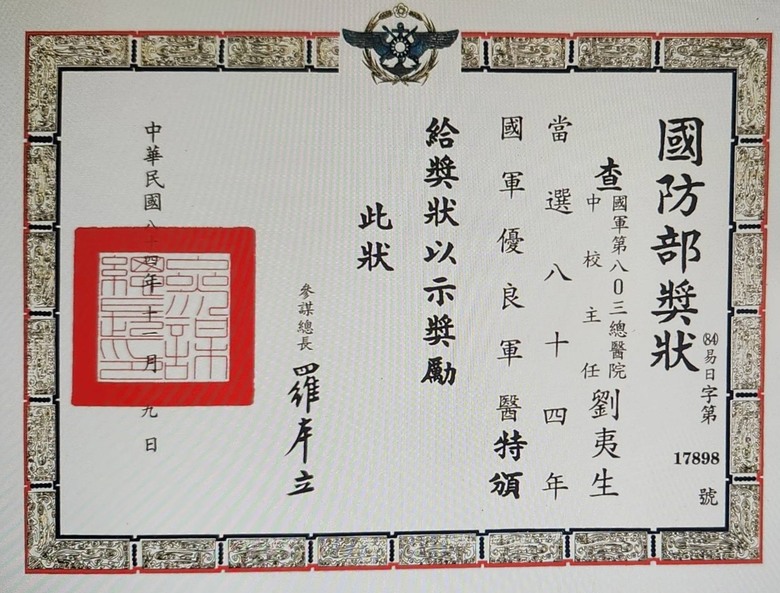 國防部獎狀
(84)易日字第17898號
查國軍第八0三總醫院
中校主任劉夷生
當選八十四年
國軍優良軍醫特頒
給獎狀以示獎勵
此狀
參謀總長 羅本立
中華民國八十四年十二月九日